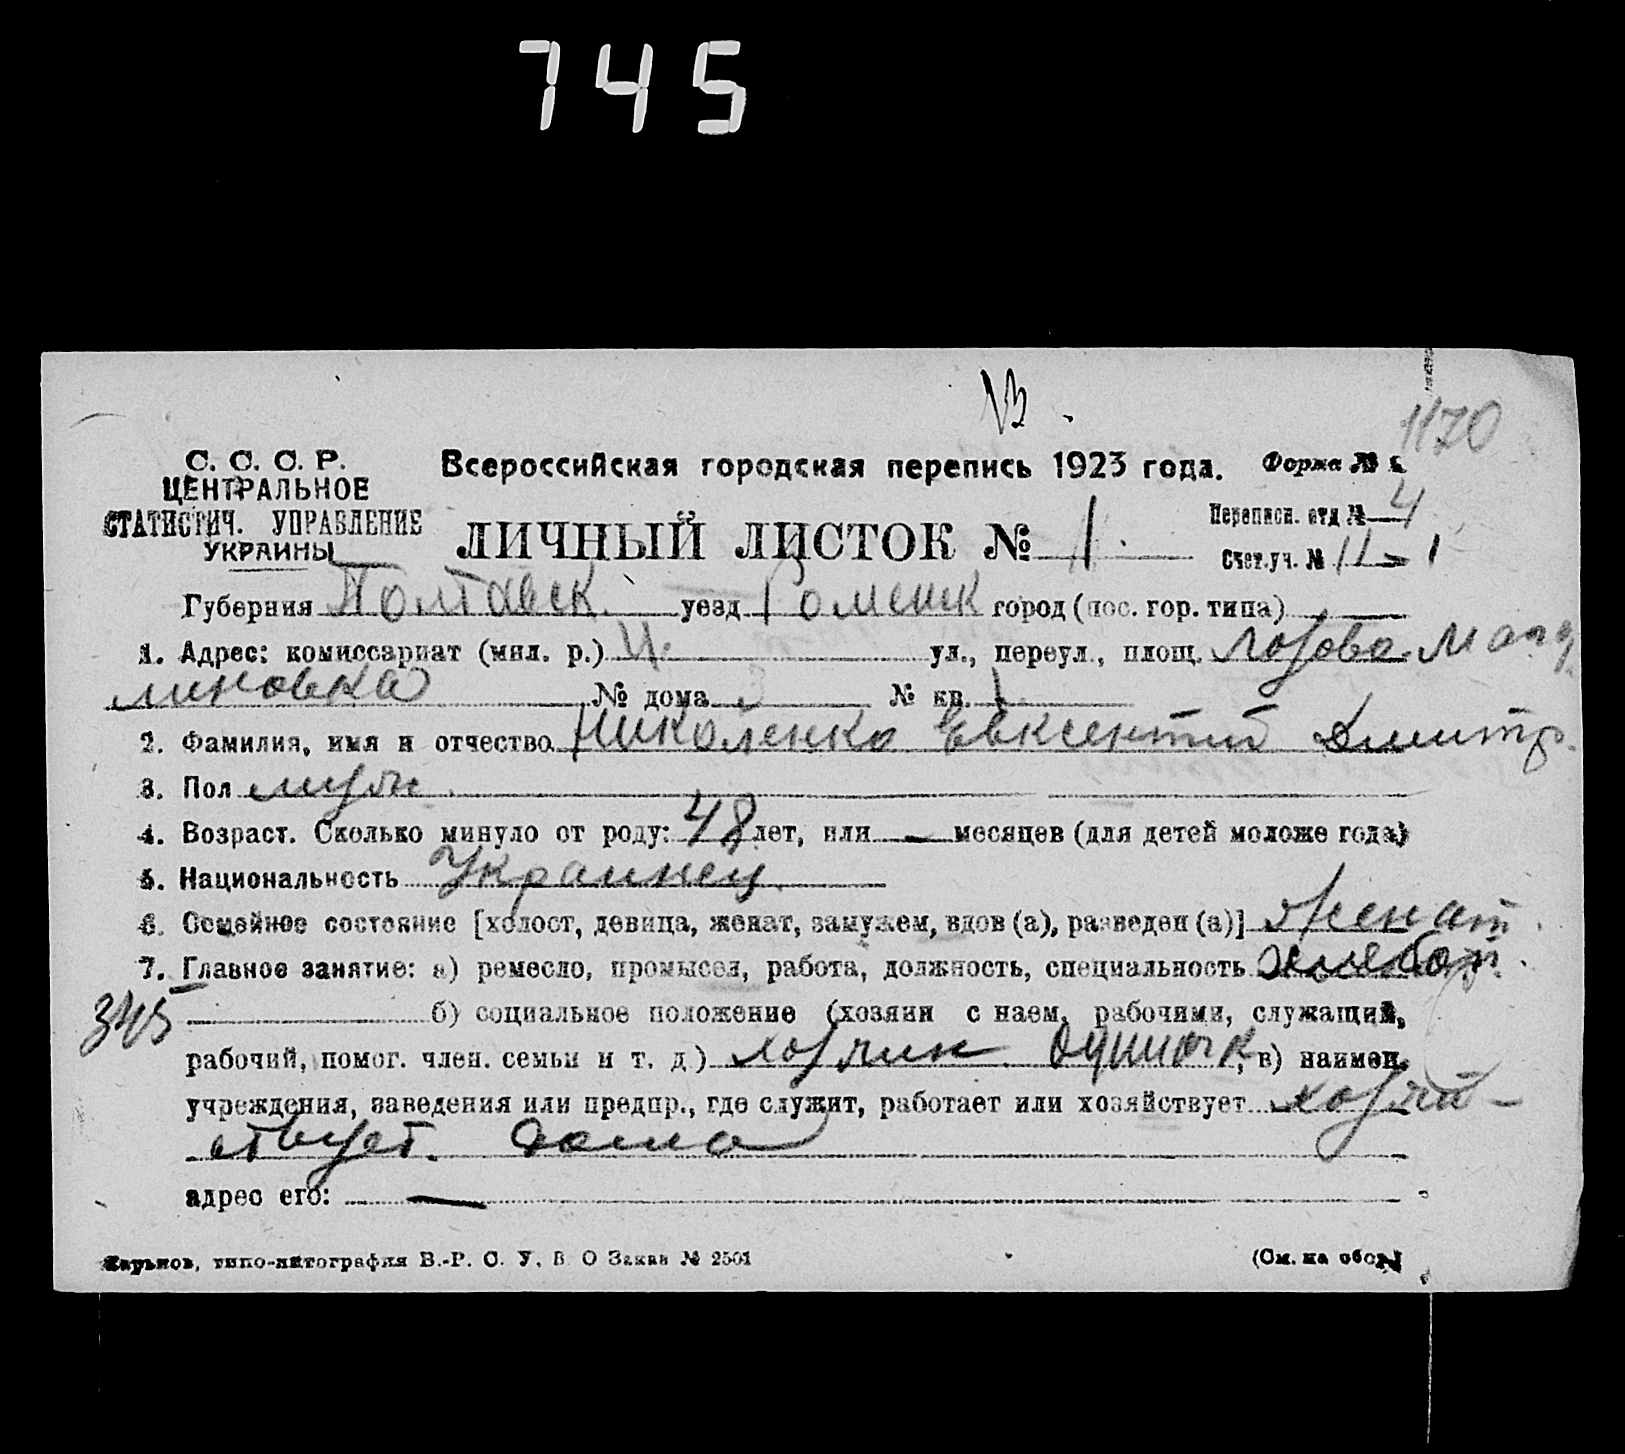 745
1170
С. С. С. Р.
ЦЕНТРАЛЬНОЕ
СТАТИСТИЧ. УПРАВЛЕНИЕ
УКРАИНЫ
Всероссийская городская перепись 1923 года. Форма №
ЛИЧНЫЙ ЛИСТОК № 1.
Переписн. отд № 4
Счет.уч. № 11 - 1
Губерния Полтавск. уезд Роменск город (пос. гор. типа)
1. Адрес: комиссариат (мил. р.) ул., переул., площ. Лозово-
№ дома № кв. 1
2. Фамилия, имя и отчество Николенко Евксентий Дмитр.
3. Пол мужс.
4. Возраст. Сколько минуло от роду: 48 лет, или — месяцев (для детей моложе года)
5. Национальность Украинец.
6. Семейное состояние [холост, девица, женат, замужем, вдов (а), разведен (а)] женат.
7. Главное занятие: а) ремесло, промысел, работа, должность, специальность хлебор.
345 б) социальное положение (хозяин с наем. рабочими, служащий,
рабочий, помог. член. семьи и т. д.) хозяин одиночк, в) наимен.
учреждения, заведения или предпр., где служит, работает или хозяйствует хозяй-
ствует. дома
адрес его: —
Харьков, типо-литография В.-Р. С. У. В О Заказ № 2501 (См. на обор.)